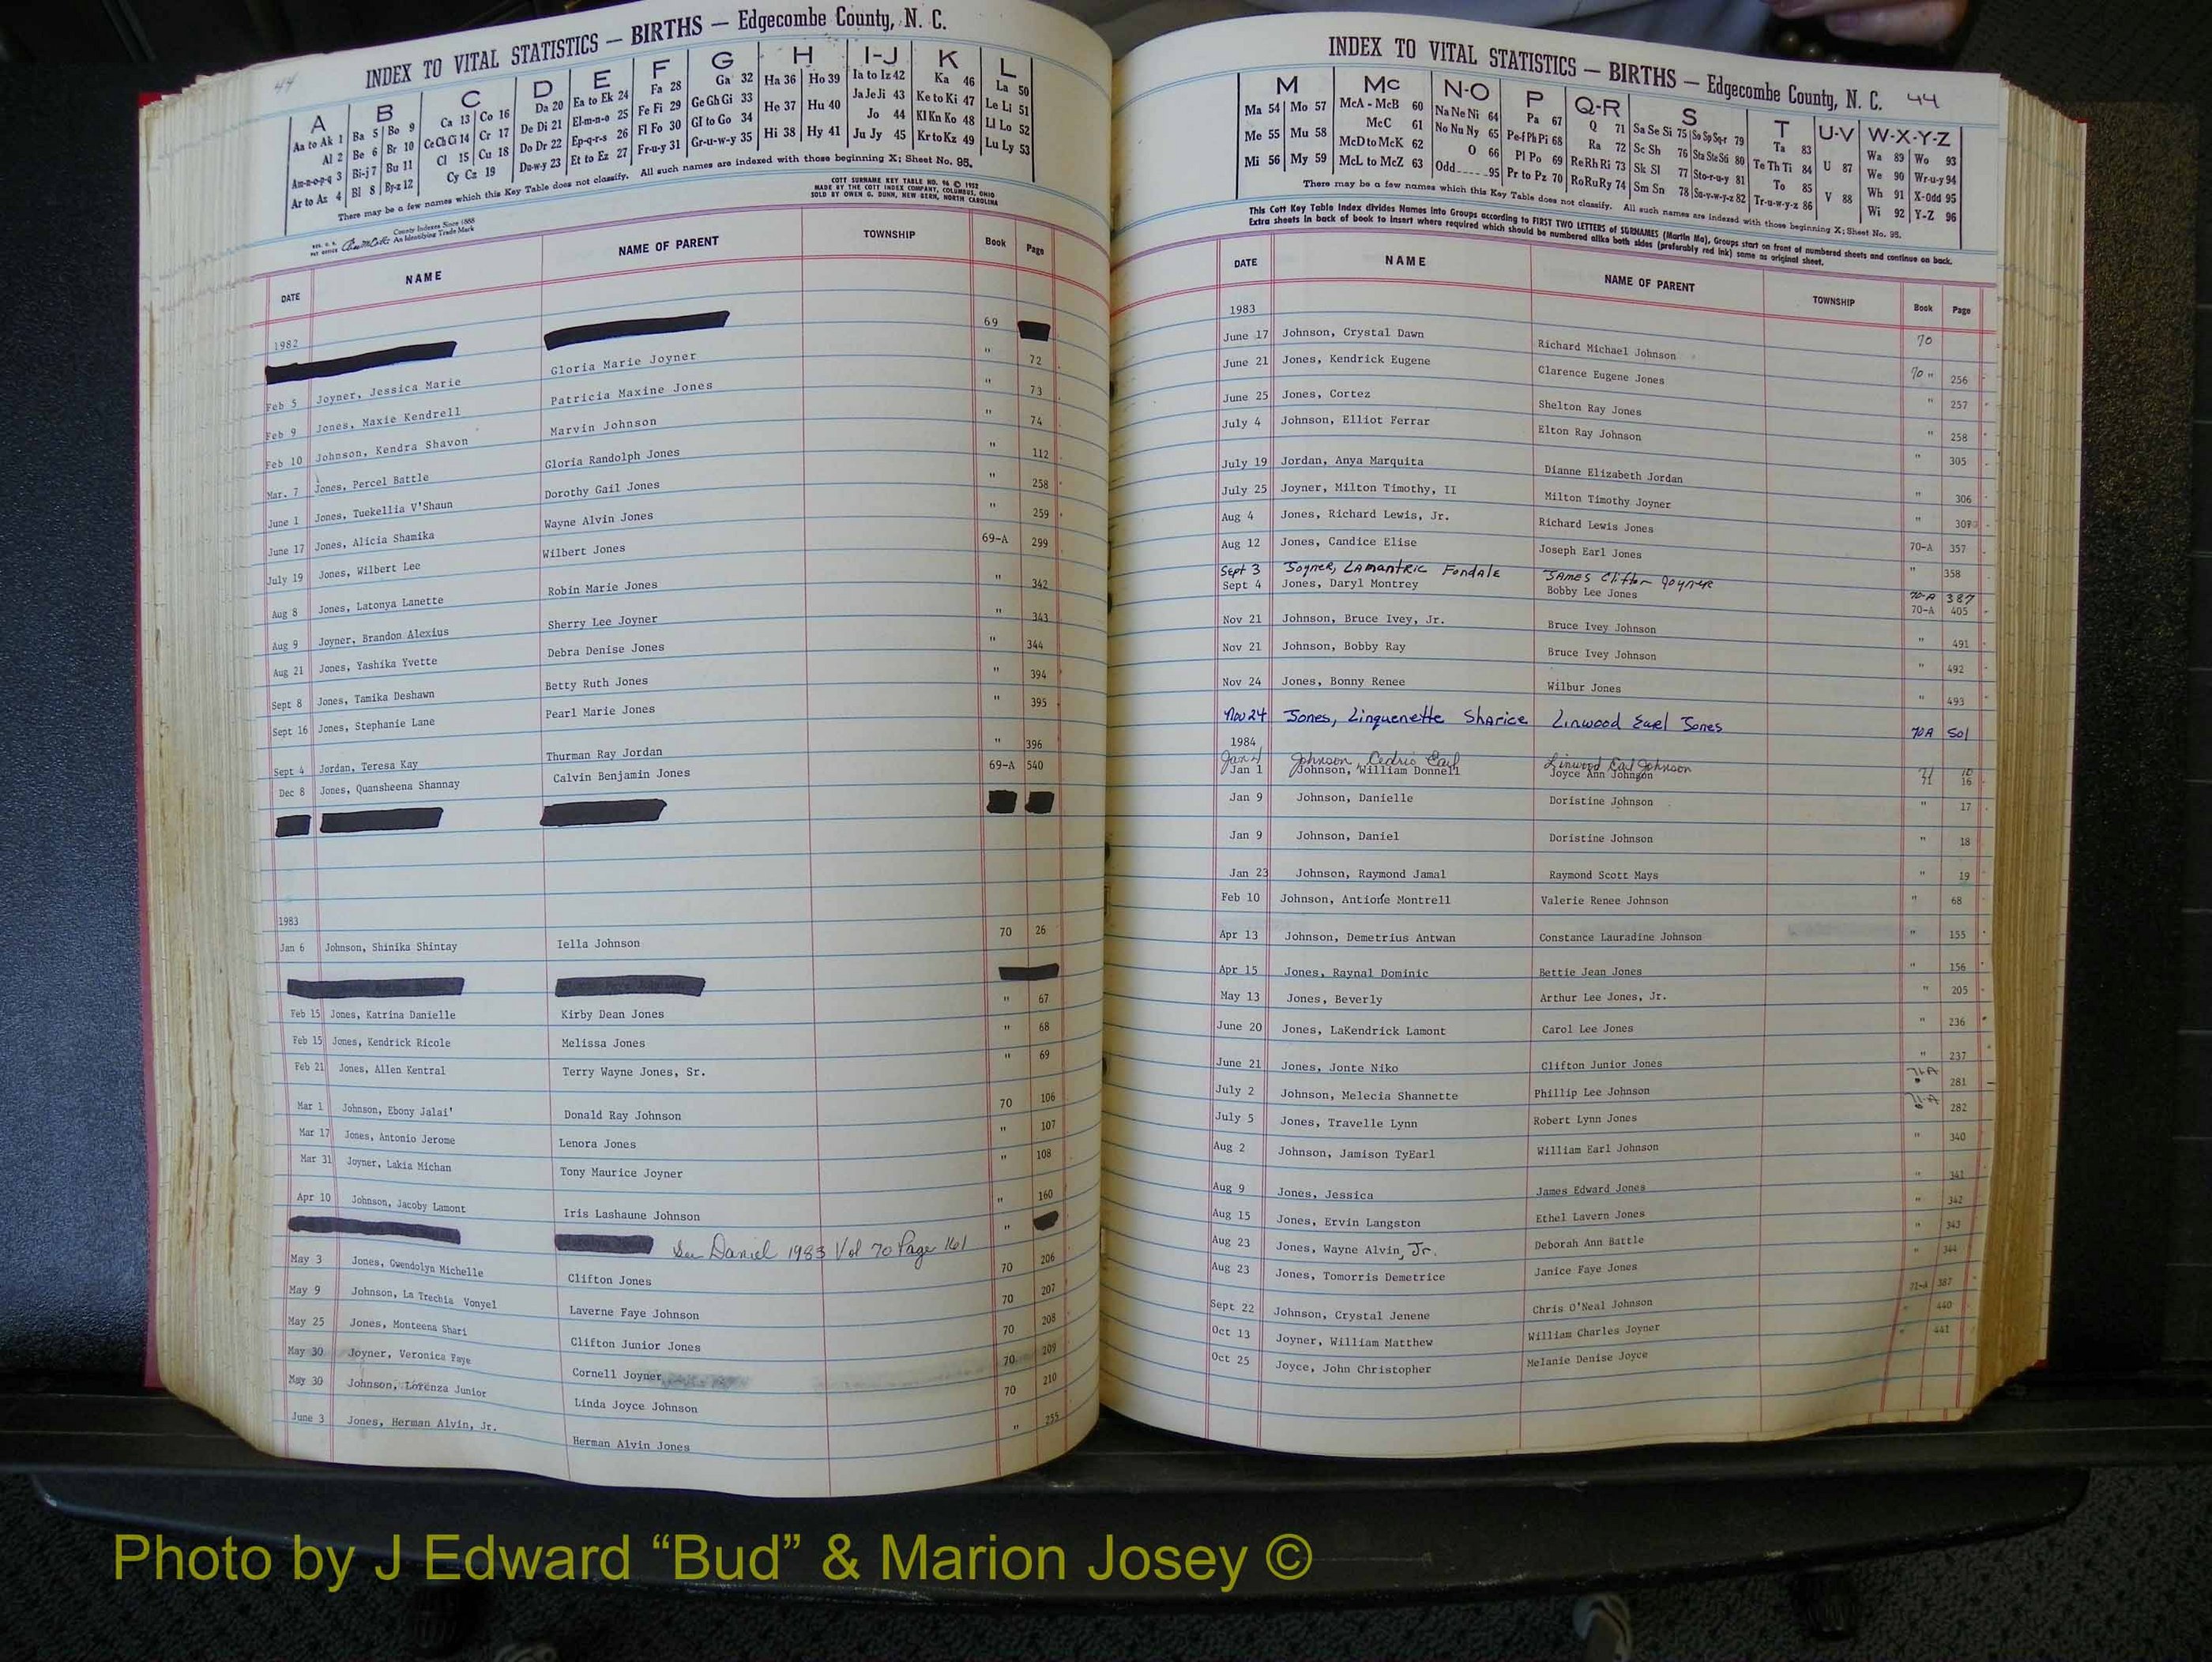 44
INDEX TO VITAL STATISTICS — BIRTHS — Edgecombe County, N. C.
A B C D E F G H I-J K L
Aa to Ak 1 Ba 5 Bo 9 Ca 13 Co 16 Da 20 Ea to Ek 24 Fa 28 Ga 32 Ha 36 Ho 39 Ia to Iz 42 Ka 46 La 50
Al 2 Be 6 Br 10 Ce Ch Ci 14 Cr 17 De Di 21 El-m-n-o 25 Fe Fi 29 Ge Gh Gi 33 He 37 Hu 40 Ja Je Ji 43 Ke to Ki 47 Le Li 51
Am-n-o-p-q 3 Bi-j 7 Bu 11 Cl 15 Cu 18 Do Dr 22 Ep-q-r-s 26 Fl Fo 30 Gl to Go 34 Hi 38 Hy 41 Jo 44 Kl Kn Ko 48 Ll Lo 52
Ar to Az 4 Bl 8 By-z 12 Cy Cz 19 Du-w-y 23 Et to Ez 27 Fr-u-y 31 Gr-u-w-y 35 Ju Jy 45 Kr to Kz 49 Lu Ly 53
There may be a few names which this Key Table does not classify. All such names are indexed with those beginning X; Sheet No. 95.
COTT SURNAME KEY TABLE NO. 96 © 1952
MADE BY THE COTT INDEX COMPANY, COLUMBUS, OHIO
SOLD BY OWEN G. DUNN, NEW BERN, NORTH CAROLINA
County Indexes Since 1888
An Identifying Trade Mark
DATE NAME NAME OF PARENT TOWNSHIP Book Page
1982 69
Feb 5 Joyner, Jessica Marie Gloria Marie Joyner " 72
Feb 9 Jones, Maxie Kendrell Patricia Maxine Jones " 73
Feb 10 Johnson, Kendra Shavon Marvin Johnson " 74
Mar. 7 Jones, Percel Battle Gloria Randolph Jones " 112
June 1 Jones, Tuekellia V'Shaun Dorothy Gail Jones " 258
June 17 Jones, Alicia Shamika Wayne Alvin Jones " 259
July 19 Jones, Wilbert Lee Wilbert Jones 69-A 299
Aug 8 Jones, Latonya Lanette Robin Marie Jones " 342
Aug 9 Joyner, Brandon Alexius Sherry Lee Joyner " 343
Aug 21 Jones, Yashika Yvette Debra Denise Jones " 344
Sept 8 Jones, Tamika Deshawn Betty Ruth Jones " 394
Sept 16 Jones, Stephanie Lane Pearl Marie Jones " 395
Sept 4 Jordan, Teresa Kay Thurman Ray Jordan " 396
Dec 8 Jones, Quansheena Shannay Calvin Benjamin Jones 69-A 540
1983
Jan 6 Johnson, Shinika Shintay Iella Johnson 70 26
Feb 15 Jones, Katrina Danielle Kirby Dean Jones " 67
Feb 15 Jones, Kendrick Ricole Melissa Jones " 68
Feb 21 Jones, Allen Kentral Terry Wayne Jones, Sr. " 69
Mar 1 Johnson, Ebony Jalai' Donald Ray Johnson 70 106
Mar 17 Jones, Antonio Jerome Lenora Jones " 107
Mar 31 Joyner, Lakia Michan Tony Maurice Joyner " 108
Apr 10 Johnson, Jacoby Lamont Iris Lashaune Johnson " 160
See Daniel 1983 Vol 70 Page 161 "
May 3 Jones, Gwendolyn Michelle Clifton Jones 70 206
May 9 Johnson, La Trechia Vonyel Laverne Faye Johnson 70 207
May 25 Jones, Monteena Shari Clifton Junior Jones 70 208
May 30 Joyner, Veronica Faye Cornell Joyner 70 209
May 30 Johnson, Lorenza Junior Linda Joyce Johnson 70 210
June 3 Jones, Herman Alvin, Jr. Herman Alvin Jones " 255
INDEX TO VITAL STATISTICS — BIRTHS — Edgecombe County, N. C. 44
M Mc N-O P Q-R S T U-V W-X-Y-Z
Ma 54 Mo 57 McA - McB 60 Na Ne Ni 64 Pa 67 Q 71 Sa Se Si 75 So Sp Sq-r 79 Ta 83 U 87 Wa 89 Wo 93
Me 55 Mu 58 McC 61 No Nu Ny 65 Pe-f Ph Pi 68 Ra 72 Sc Sh 76 Sta Ste Sti 80 Te Th Ti 84 V 88 We 90 Wr-u-y 94
Mi 56 My 59 McD to McK 62 O 66 Pl Po 69 Re Rh Ri 73 Sk Sl 77 Sto-r-u-y 81 To 85 Wh 91 X-Odd 95
McL to McZ 63 Odd 95 Pr to Pz 70 Ro Ru Ry 74 Sm Sn 78 Su-v-w-y-z 82 Tr-u-w-y-z 86 Wi 92 Y-Z 96
There may be a few names which this Key Table does not classify. All such names are indexed with those beginning X; Sheet No. 95.
This Cott Key Table Index divides Names into Groups according to FIRST TWO LETTERS of SURNAMES (Martin Ma), Groups start on front of numbered sheets and continue on back.
Extra sheets in back of book to insert where required which should be numbered alike both sides (preferably red ink) same as original sheet.
DATE NAME NAME OF PARENT TOWNSHIP Book Page
1983
June 17 Johnson, Crystal Dawn Richard Michael Johnson 70 256
June 21 Jones, Kendrick Eugene Clarence Eugene Jones 70 " 257
June 25 Jones, Cortez Shelton Ray Jones " 258
July 4 Johnson, Elliot Ferrar Elton Ray Johnson " 305
July 19 Jordan, Anya Marquita Dianne Elizabeth Jordan " 306
July 25 Joyner, Milton Timothy, II Milton Timothy Joyner "
Aug 4 Jones, Richard Lewis, Jr. Richard Lewis Jones 70-A 357
Aug 12 Jones, Candice Elise Joseph Earl Jones " 358
Sept 3 Joyner, LAmantric Fondale JAMES Clifton Joyner 70-A 387
Sept 4 Jones, Daryl Montrey Bobby Lee Jones 70-A 405
Nov 21 Johnson, Bruce Ivey, Jr. Bruce Ivey Johnson " 491
Nov 21 Johnson, Bobby Ray Bruce Ivey Johnson " 492
Nov 24 Jones, Bonny Renee Wilbur Jones " 493
Nov 24 Jones, Linquenette Sharice Linwood Earl Jones 70A 501
1984
Jan 4 Johnson, Cedric Earl Linwood Earl Johnson 71 10
Jan 1 Johnson, William Donnell Joyce Ann Johnson 71 16
Jan 9 Johnson, Danielle Doristine Johnson " 17
Jan 9 Johnson, Daniel Doristine Johnson " 18
Jan 23 Johnson, Raymond Jamal Raymond Scott Mays " 19
Feb 10 Johnson, Antione Montrell Valerie Renee Johnson " 68
Apr 13 Johnson, Demetrius Antwan Constance Lauradine Johnson " 155
Apr 15 Jones, Raynal Dominic Bettie Jean Jones " 156
May 13 Jones, Beverly Arthur Lee Jones, Jr. " 205
June 20 Jones, LaKendrick Lamont Carol Lee Jones " 236
June 21 Jones, Jonte Niko Clifton Junior Jones " 237
July 2 Johnson, Melecia Shannette Phillip Lee Johnson 71A 281
July 5 Jones, Travelle Lynn Robert Lynn Jones 71-A 282
Aug 2 Johnson, Jamison TyEarl William Earl Johnson " 340
Aug 9 Jones, Jessica James Edward Jones " 341
Aug 15 Jones, Ervin Langston Ethel Lavern Jones " 342
Aug 23 Jones, Wayne Alvin, Jr. Deborah Ann Battle " 343
Aug 23 Jones, Tomorris Demetrice Janice Faye Jones " 344
Sept 22 Johnson, Crystal Jenene Chris O'Neal Johnson 71-A 387
Oct 13 Joyner, William Matthew William Charles Joyner " 440
Oct 25 Joyce, John Christopher Melanie Denise Joyce " 441
Photo by J Edward “Bud” & Marion Josey ©